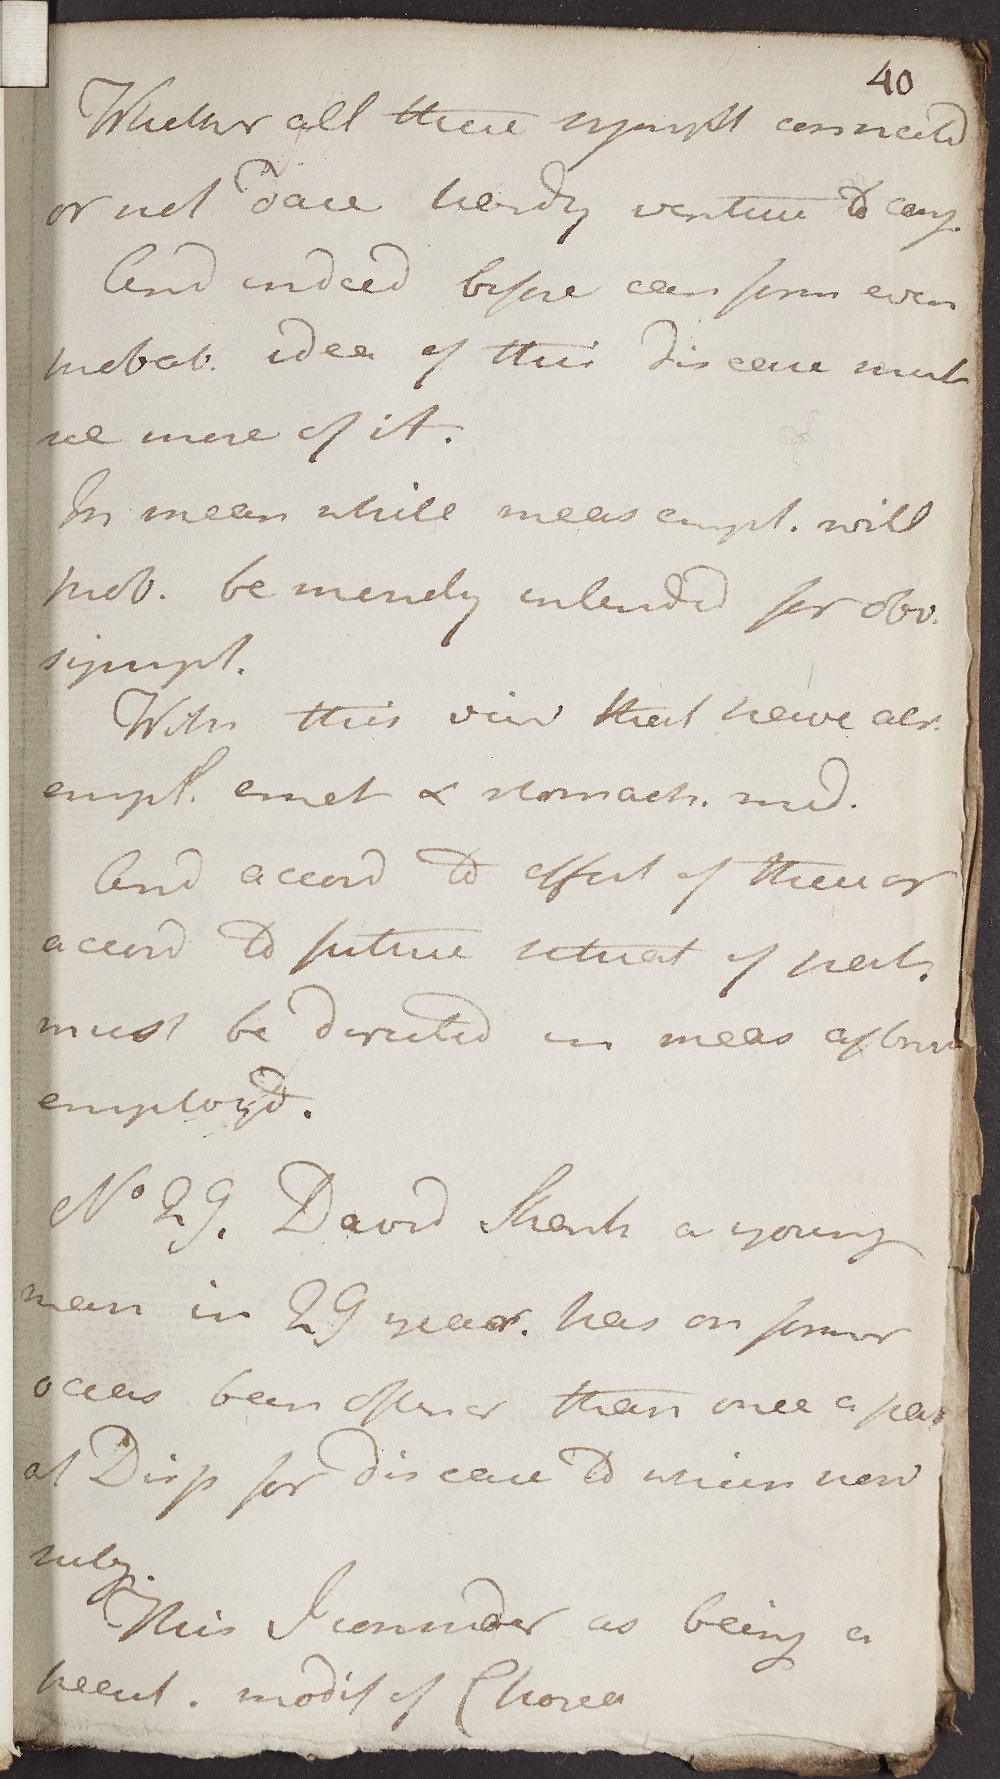 40
Whether all these sympt connected
or not dare hardly venture to say.
And indeed before can form even
probab. idea of this disease must
see more of it.
In mean while meas empl. will
prob. be merely intended for obv.
sympt.
With this view that have alr.
empl. emet & stomach. med.
And accord to effect of these or
accord to future situat of pat.
must be directed in meas afterw
employ'd.
No 29. David a young
man in 29 year. has on former
occas been oftener than once a pat
at Disp for disease to which now
subj.
This I consider as being a
pecul. modif of Chorea